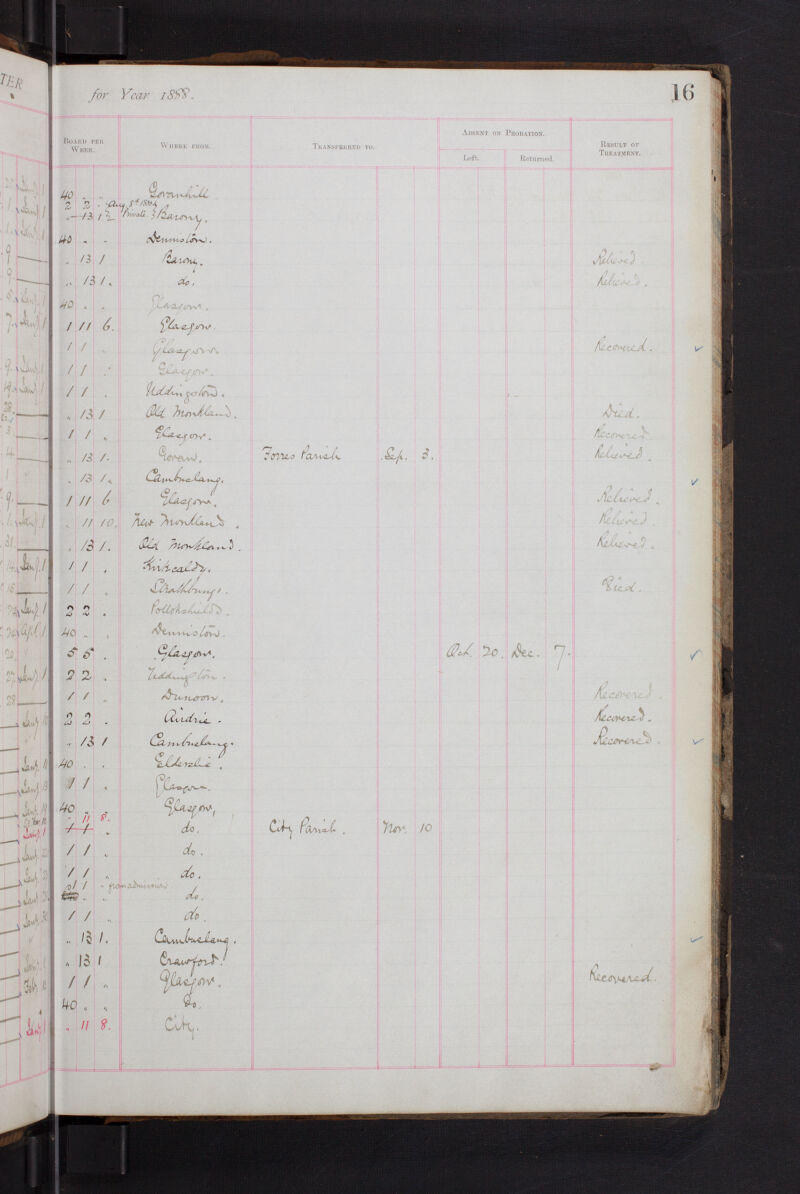 TER
for Year 1888.
16
BOARD PER WEEK.
WHERE FROM.
TRANSFERRED TO.
ABSENT ON PROBATION.
Left.
Returned.
RESULT OF TREATMENT.
40 " " Govanhill
2 2 . Aug 8th 1884
" 13 1½ Private & Barony.
40 " " Denniston.
" 13 1 Barony. Relieved
" 13 1. do. Relieved.
40 . . Glasgow.
1 11 6. Glasgow.
1 1 . Glasgow Recovered.
1 1 . Glasgow.
1 1 . Uddingston.
" 13 1 Old Monkland. Died.
1 1 " Glasgow. Recovered
" 13 1. Govan. Forres Parish Sep. 3. Relieved.
. 13 1. Cambuslang.
1 11 6 Glasgow. Relieved.
. 11 10. New Monkland. Relieved.
. 13 1. Old Monkland. Relieved.
1 1 . Kirkcaldy.
1 1 . Strathbungo. Died.
2 2 . Pollokshields.
40 . . Denniston.
5 5 . Glasgow. Oct. 20. Dec. 7.
2 2 . Uddingston.
1 1 " Dunoon. Recovered.
2 2 . Airdrie. Recovered.
. 13 1 Cambuslang. Recovered.
40 . . Elderslie.
1 1 " Glasgow.
40 " . Glasgow,
. 11 8.
1 1 " do. City Parish. Nov. 10
1 1 " do.
1 1 " do.
1 1 " from admission
do.
1 1 " do
" 13 1. Cambuslang.
" 13 1 Crawford.
1 1 " Glasgow. Recovered.
40 " " Do.
" 11 8. City.